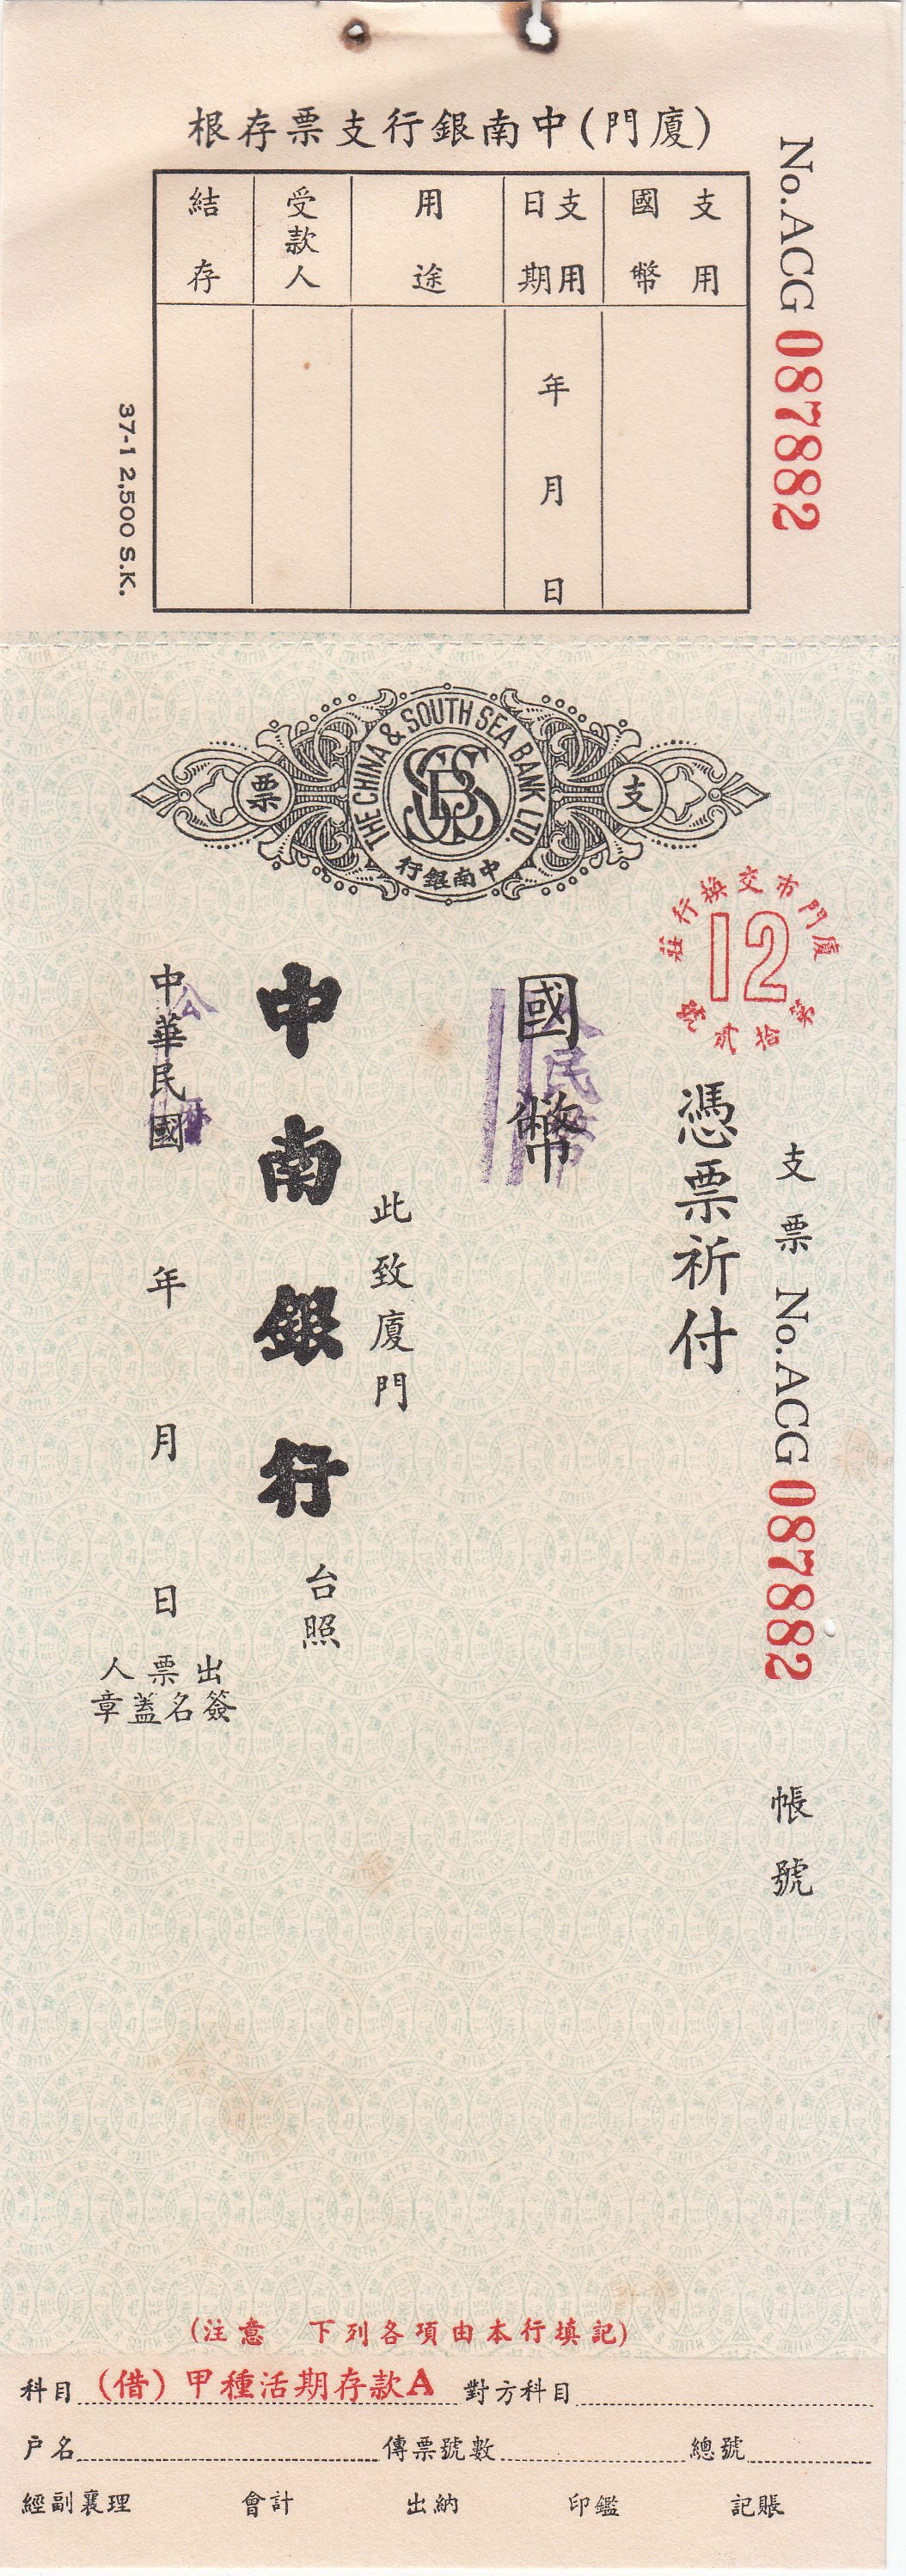 根存票支行銀南中(門廈)
No.ACG 087882
支用
國幣
支用
日期
用途
受款人
結存
年月日
37-1 2,500 S.K.
THE CHINA & SOUTH SEA BANK LTD.
票
支
行銀南中
廈門市交換行莊
12
第拾貳號
支票 No.ACG 087882
帳號
憑票祈付
國幣
人民幣
此致廈門
中南銀行
台照
中華民國 年 月 日
公
人票出
章蓋名簽
(注意 下列各項由本行填記)
科目(借)甲種活期存款A 對方科目
戶名 傳票號數 總號
經副襄理 會計 出納 印鑑 記賬